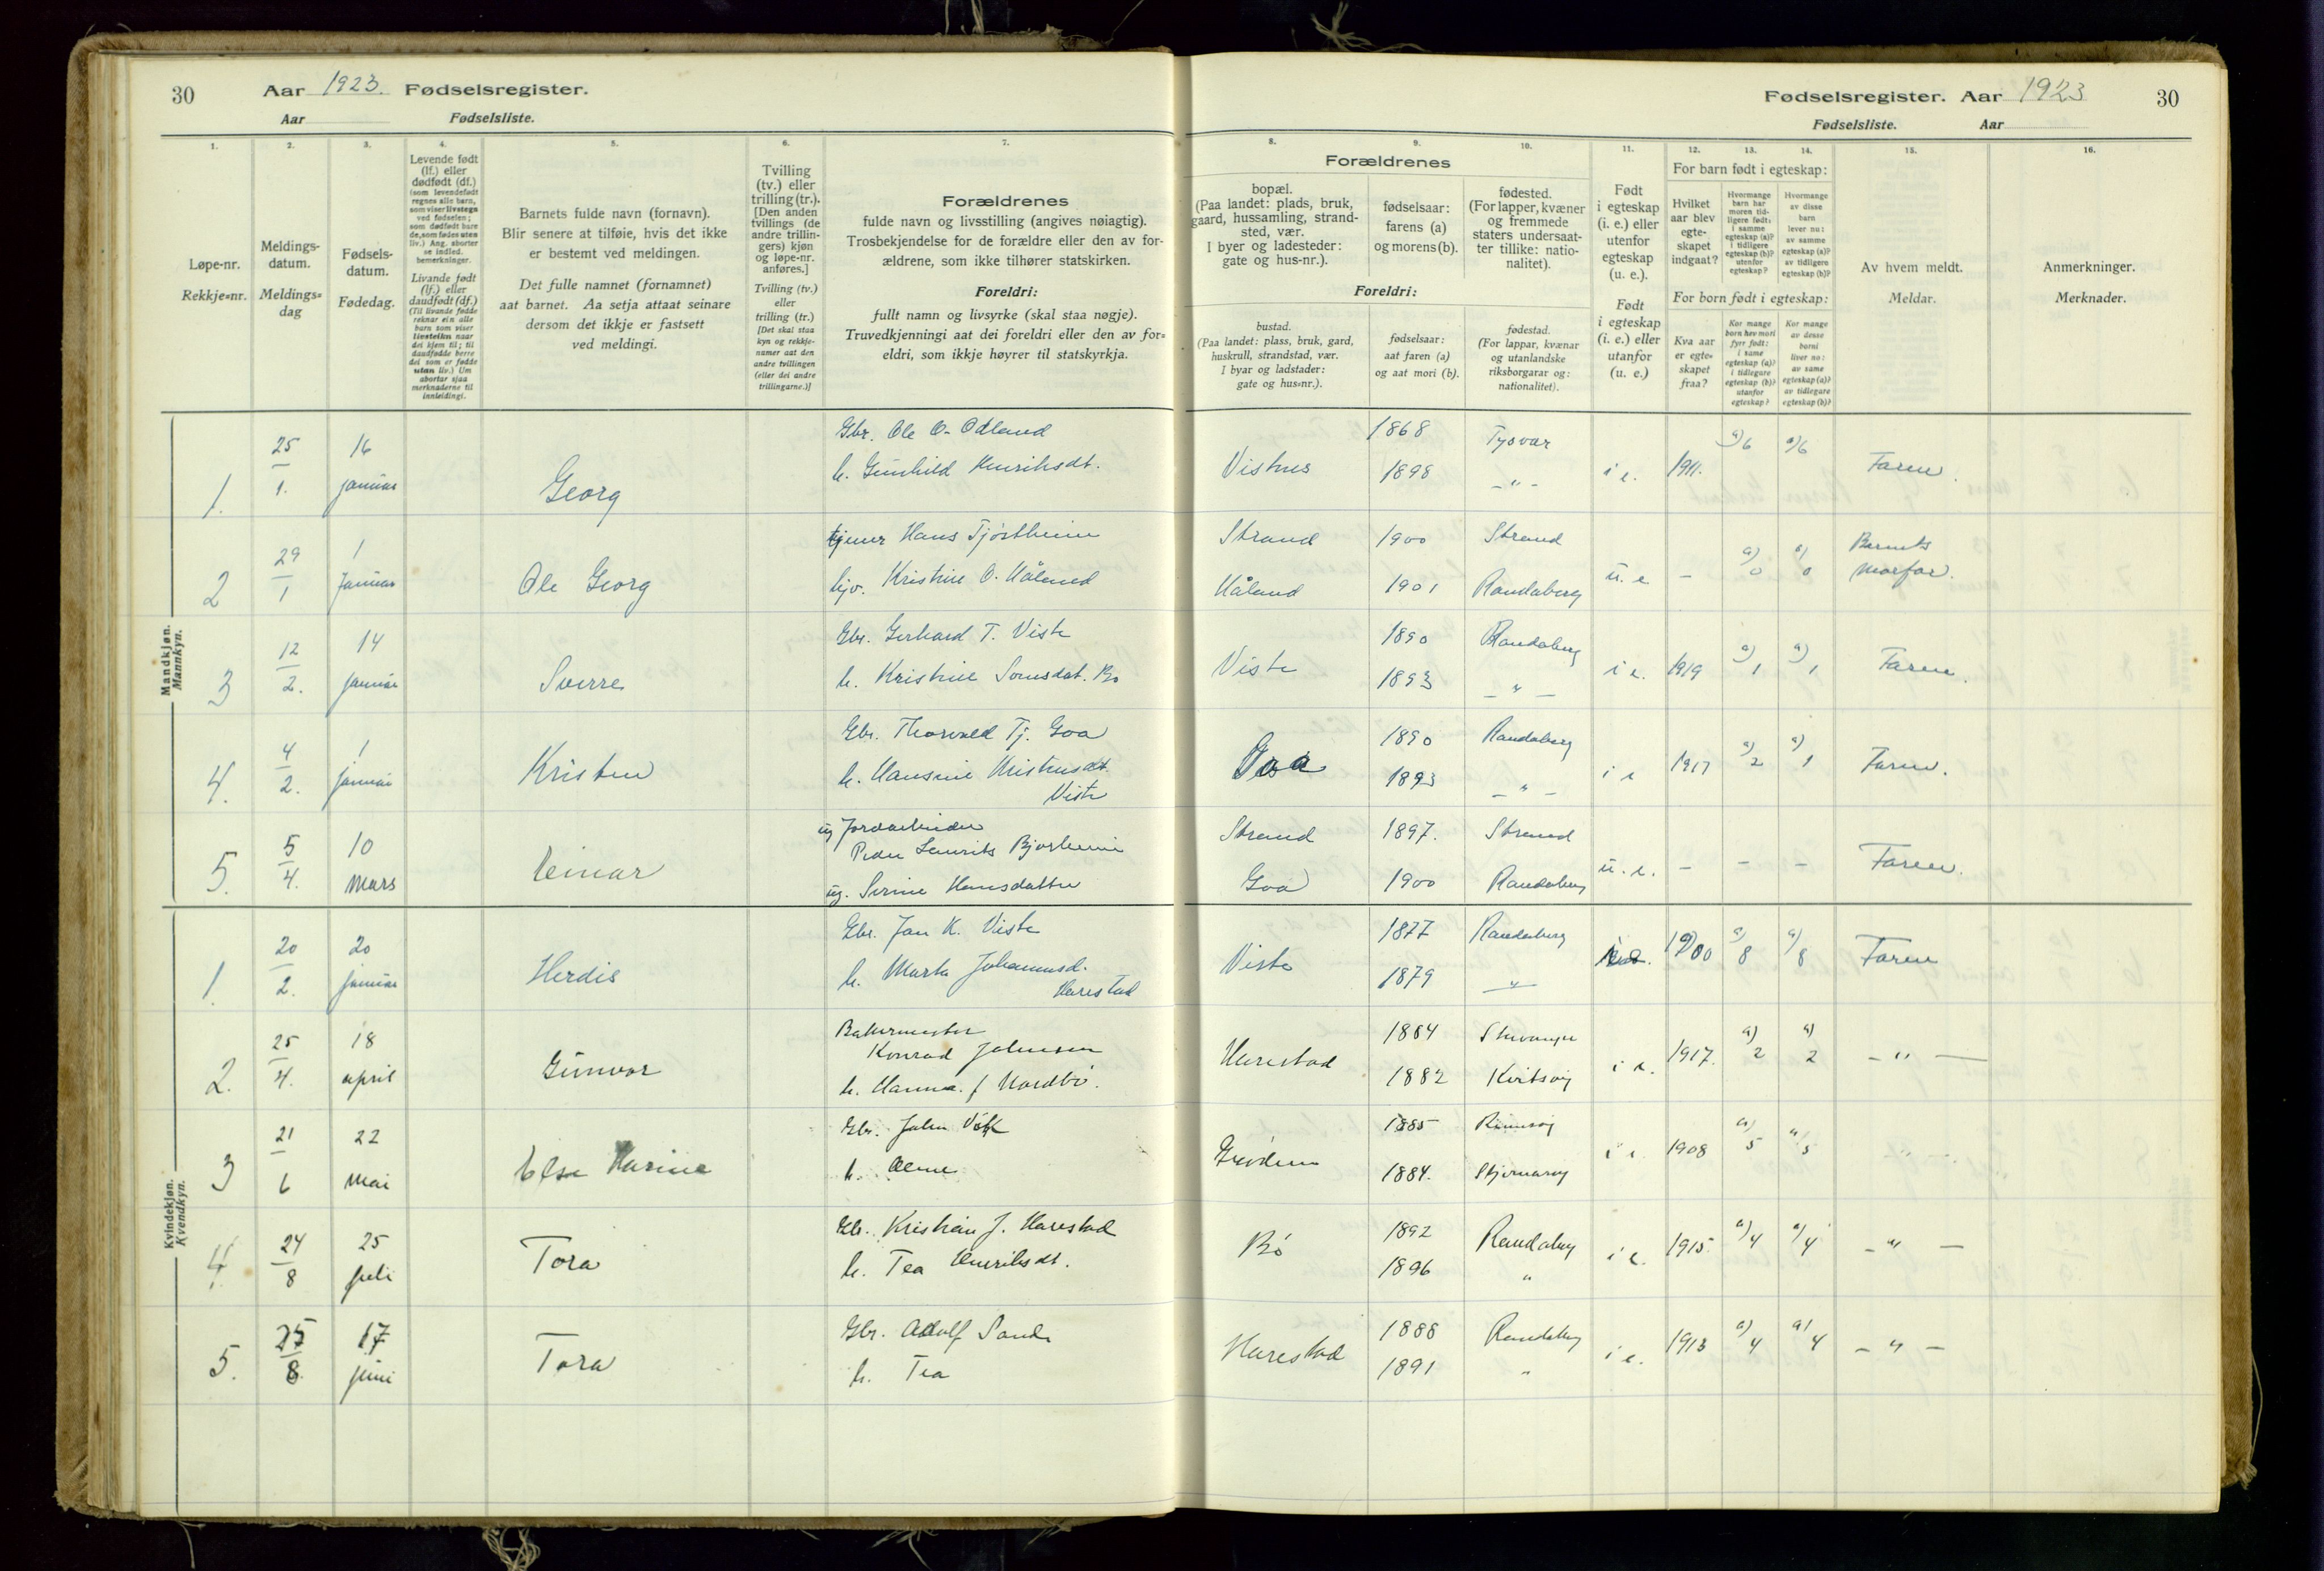 30 Aar 1923. Fødselsregister.
Aar Fødselsliste.
Fødselsregister. Aar 1923 30
Fødselsliste. Aar
1. 2. 3. 4. 5. 6. 7. 8. 9. 10. 11. 12. 13. 14. 15. 16.
Løpe-nr.
Rekkje=nr.
Meldings-
datum.
Meldings=
dag
Fødsels-
datum.
Fødedag.
Levende født
(lf.) eller
dødfødt (df.)
(som levendefødt
regnes alle barn,
som viser livstegn
ved fødselen;
som dødfødt bare
de, som fødes uten
liv.) Ang. aborter
se indled.
bemerkninger.
Livande født
(lf.) eller
daudfødt (df.)
(Til livande fødde
reknar ein alle
barn som viser
livsteikn naar
dei kjem til; til
daudfødde berre
dei som er fødde
utan liv.) Um
abortar sjaa
merknaderne til
innleidingi.
Barnets fulde navn (fornavn).
Blir senere at tilføie, hvis det ikke
er bestemt ved meldingen.
Det fulle namnet (fornamnet)
aat barnet. Aa setja attaat seinare
dersom det ikkje er fastsett
ved meldingi.
Tvilling
(tv.) eller
trilling (tr.).
[Den anden
tvillings (de
andre trillin-
gers) kjøn
og løpe-nr.
anføres.]
Tvilling (tv.)
eller
trilling (tr.)
[Det skal staa
kyn og rekkje-
numer aat den
andre tvillingen
(eller dei andre
trillingarne.)]
Forældrenes
fulde navn og livsstilling (angives nøiagtig).
Trosbekjendelse for de forældre eller den av for-
ældrene, som ikke tilhører statskirken.
Foreldri:
fullt namn og livsyrke (skal staa nøgje).
Truvedkjenningi aat dei foreldri eller den av for=
eldri, som ikkje høyrer til statskyrkja.
Forældrenes
bopæl.
(Paa landet: plads, bruk,
gaard, hussamling, strand-
sted, vær.
I byer og ladesteder:
gate og hus-nr.).
fødselsaar:
farens (a)
og morens (b).
fødested.
(For lapper, kvæner
og fremmede
staters undersaat-
ter tillike: natio-
nalitet).
Foreldri:
bustad.
(Paa landet: plass, bruk, gard,
huskrull, strandstad, vær.
I byar og ladstader:
gate og hus=nr.).
fødselsaar:
aat faren (a)
og aat mori (b).
fødestad.
(For lappar, kvænar
og utanlandske
riksborgarar og:
nationalitet).
Født
i egteskap
(i. e.) eller
utenfor
egteskap
(u. e.).
Født
i egteskap
(i. e.) eller
utanfor
(u. e.)
For barn født i egteskap:
Hvilket
aar blev
egte-
skapet
indgaat?
Hvormange
barn har
moren tid-
ligere født:
i samme
egteskap (a)?
i tidligere
egteskap (b)?
utenfor
egteskap?
Hvormange
av disse
barn
lever nu:
av samme
egteskap (a)?
av tidligere
egteskap (b)?
For born født i egteskap:
Kva aar
er egte=
skapet
fraa?
Kor mange
born hev mori
fyrr født:
i same
egteskap (a)?
i tidlegare
egteskap (b)?
utanfor
egteskap?
Kor mange
av desse
borni
liver no:
av same
egteskap (a)?
av tidlegare
egteskap (b)?
Av hvem meldt.
Meldar.
Anmerkninger.
Merknader.
Mandkjøn.
Mannkyn.
1. 25/1. 16 januar Georg
Gbr. Ole O. Odland
h. Gunhild Henriksdt.
Vistnes 1868 Tysvær
1898 -"-
i e. 1911. a)6 a)6 Faren.
2 29/1 1 Januar Ole Georg
tjener Hans Tjöstheim
tjv. Kristine O. Håland
Strand 1900 Strand
Håland 1901 Randaberg
u. e - a) 0 a) 0 Barnets
Morfar.
3 12/2. 14 januar Sverre
Gbr. Gerhard T. Viste
h. Kristine Somsdat. Bö
Viste 1890 Randaberg
1893 -"-
i e. 1919 a) 1 a) 1 Faren.
4. 4/2. 1 januar Kristen
Gbr. Thorvald Tj. Goa
h. Hansine Kristensdt.
Viste
Goa 1890 Randaberg
1893 -"-
i e 1917 a) 2 a) 1 Faren.
5. 5/4. 10 Mars Einar
ug Jordarbeider
Peder Laurits Bjørheim
ug. Serine Hansdatter
Strand 1897. Strand
Goa 1900 Randaberg
u. e. - - - Faren.
Kvindekjøn.
Kvendkyn.
1. 20/2. 20 januar Herdis
Gbr. Jan K. Viste
h. Marta Johannesd.
Harestad
Viste 1877 Randaberg
1879 -"-
i e. 1900 a) 8 a) 8 Faren
2. 25/4. 18 april Gunvor
Bakermester
Konrad Johnsen
h. Hanna f Nordbö.
Harestad 1884 Stavanger
1882 Kvitsøy
i e. 1917. a) 2 a) 2 -"-
3 21/6 22 mai Else Karine
Gbr. John Vik
h. Alma
Grödem 1885 Rennesøy
1884. Stjernarøy
i e. 1908 a) 5 a) 5 -"-
4. 24/8 25 juli Tora
Gbr. Kristian J. Harestad
h. Tea Henriksdt.
Bö 1892 Randaberg
1896 "
i e. 1915. a) 4 a) 4 -"-
5. 25/8. 17 juni Tora
Gbr. Adolf Sande
h. Tea
Harestad 1888 Randaberg
1891 "
i e. 1913 a) 4 a) 4 -"-